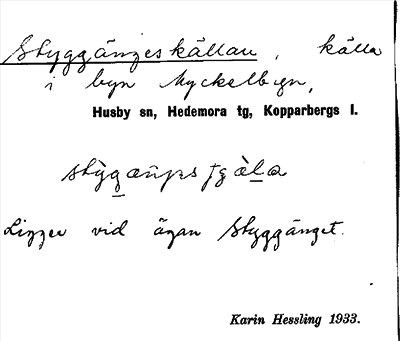 Styggängeskällan, källa
i byn Myckelbyn,
Husby sn, Hedemora tg, Kopparbergs l.
Ligger vid ägan Styggänget.
Karin Hessling 1933.